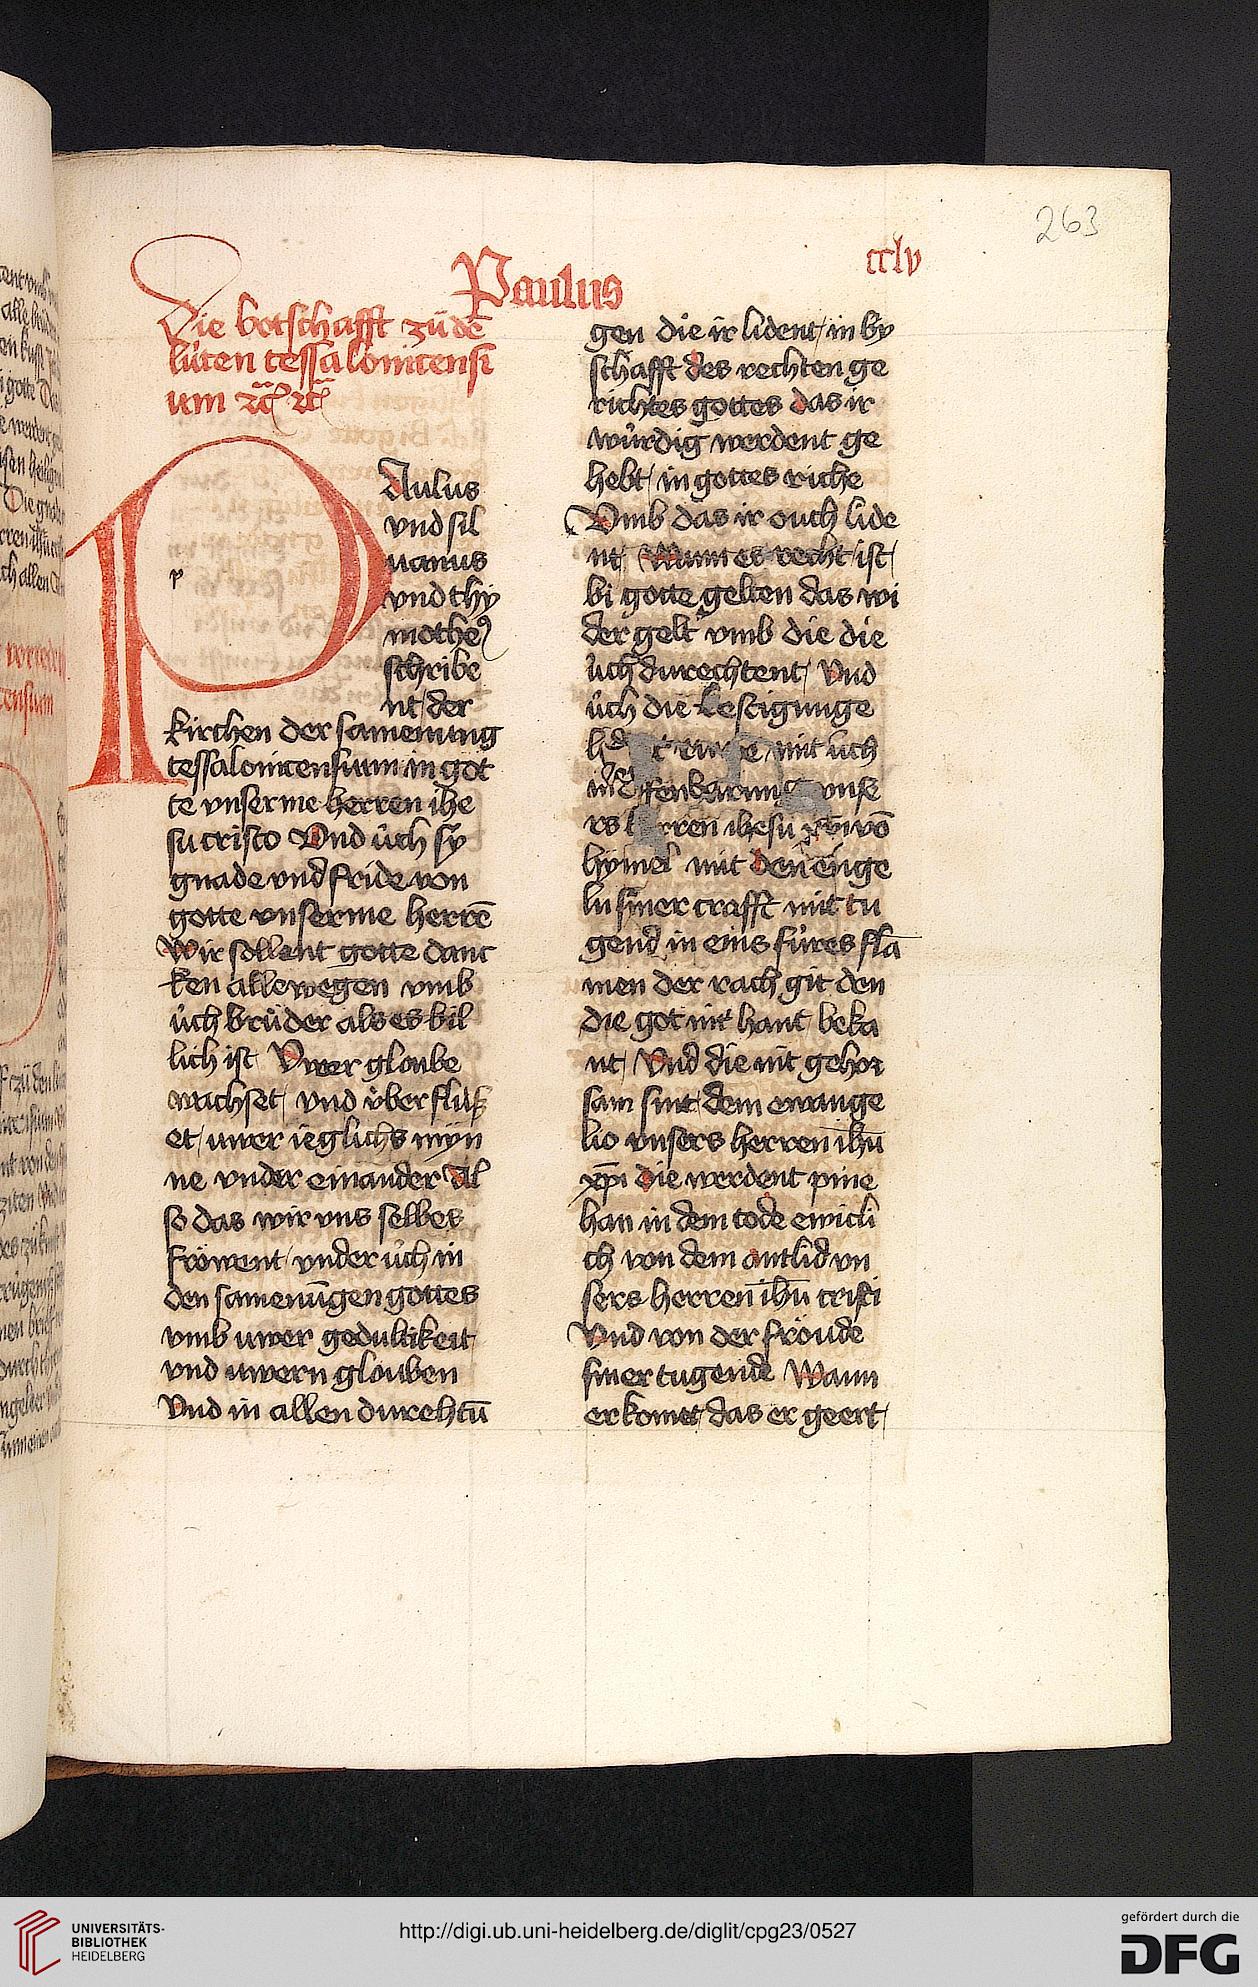 263
Paulus
cclv
Die botschafft zů dē
lúten tessalonicensi
um ꝛc̃ ꝛc̃
P
p
Aulus
vnd sil
uanus
vnd thy
motheꝰ
schribe
nt der
kirchen der samenung
tessalonicensium in got
te vnserme herren ihe
su cristo Vnd úch sy
gnade vnd fride von
gotte vnserme herrē
Wir sollent gotte danc
ken allewegen vmb
úch brůder als es bil
lich ist Vwer gloube
wachset vnd úberflúß
et uwer ieglichs myn
ne vnder einander Al
so das wir vns selbes
frówent vnder úch in
den samenūgen gottes
vmb uwer gedultikeit
vnd uwern glouben
Vnd in allen durehtū
gen die ir lident in by
schafft des rechten ge
richtes gottes das ir
wúrdig werdent ge
hebt in gottes riche
Vmb das ir ouch lide
nt Wann es recht ist
bi gotte gelten das wi
der gelt vmb die die
úch durechtent Vnd
úch die
mit úch
vnse
rs ihesu xp̄i vō
hymel mit den enge
ln siner crafft mit tu
gend in eins fúres flā
men der rach git den
die got nit hant beka
nt Vnd die nit gehor
sam sint dem ewange
lio vnsers herren ihū
xp̄i die werdent pine
han in dem tode ewicli
ch von dem antlid vn
sers herren ihū cristi
Vnd von der fróude
siner tugende Wann
er komet das er geert
UNIVERSITÄTS-
BIBLIOTHEK
HEIDELBERG
http://digi.ub.uni-heidelberg.de/diglit/cpg23/0527
gefördert durch die
DFG